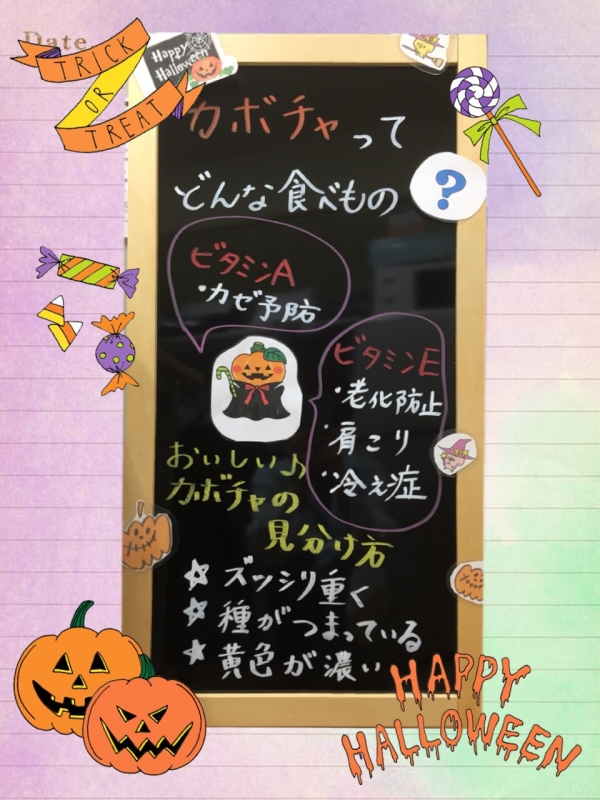 Date
TRICK
OR
TREAT
Happy
Halloween
カボチャって
どんな食べもの?
ビタミンA
・カゼ予防
ビタミンE
・老化防止
・肩こり
・冷え症
おいしい♪
カボチャの
見分け方
☆ズッシリ重く
☆種がつまっている
☆黄色が濃い
HAPPY
HALLOWEEN